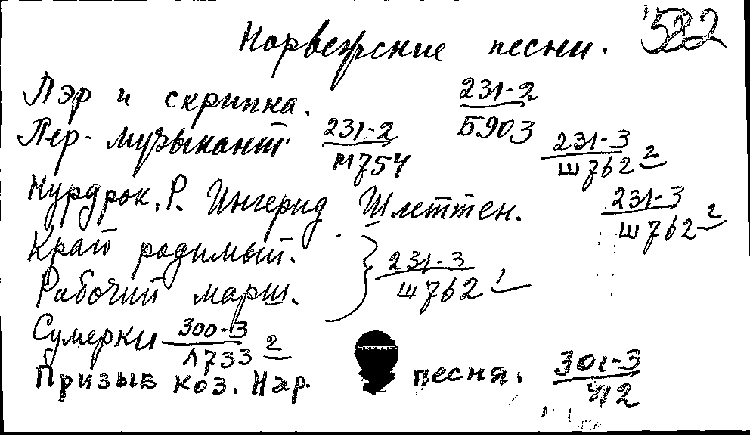 Норвежские песни. 532
Пэр и скрипка. 231-2 / Б903
Пер-музыкант 231-2 / М754 231-3 / Ш762 2
Нурдрок, Р. Ингерид Шлеттен. 231-3 / Ш762-2
Край родимый. } 231-3 / Ш762 1
Рабочий марш.
Сумерки 300-3 / Л733 2
Призыв коз. Нар. песня. 301-3 / Ч12